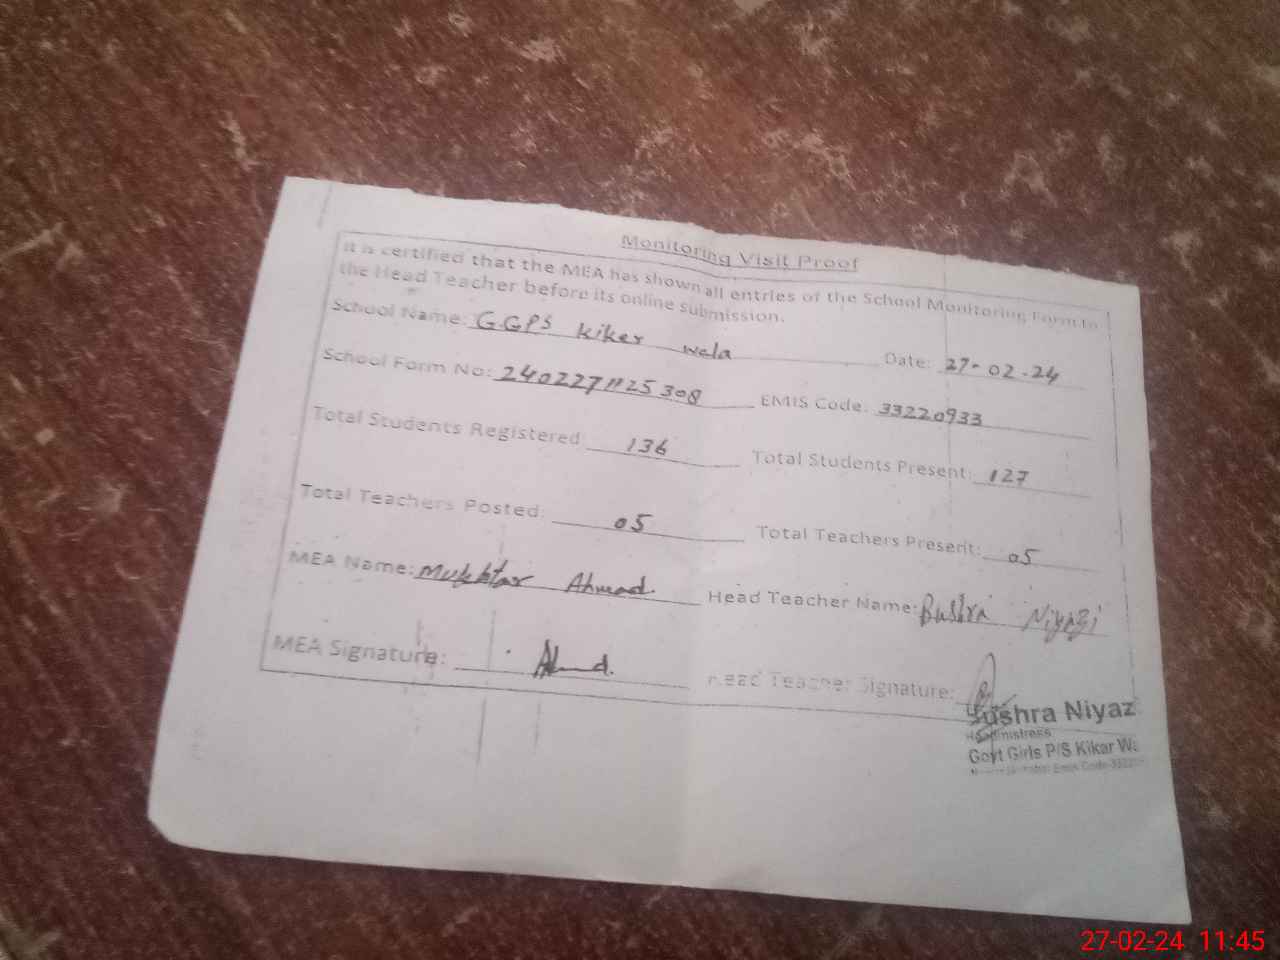 Monitoring Visit Proof
It is certified that the MEA has shown all entries of the School Monitoring Form to
the Head Teacher before its online submission.
School Name: G.GPS Kiker wala Date: 27-02-24
School Form No: 2402271125308 EMIS Code: 33220933
Total Students Registered: 136 Total Students Present: 127
Total Teachers Posted: 05 Total Teachers Present: 05
MEA Name: Mukhtar Ahmad. Head Teacher Name: Bushra Niyazi
MEA Signature: Ahmd. Head Teacher Signature:
Bushra Niyaz
Headmistress
Govt Girls P/S Kikar Wa
Emis Code-3322
27-02-24 11:45